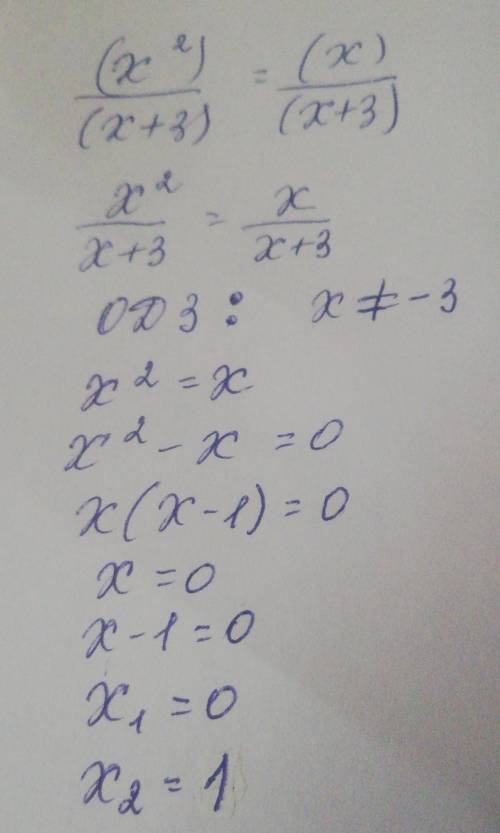 (x²)/(x+3) = (x)/(x+3)
x²/x+3 = x/x+3
ОДЗ: x ≠ -3
x² = x
x² - x = 0
x(x-1) = 0
x = 0
x-1 = 0
x₁ = 0
x₂ = 1